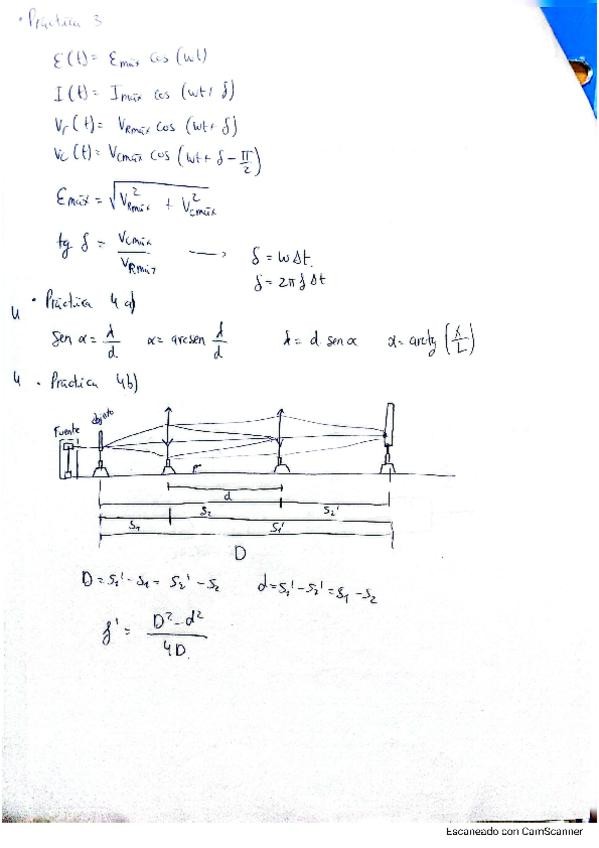 • Práctica 3
ε(t) = εmáx cos (wt)
I(t) = Imáx cos (wt + δ)
Vr(t) = VRmáx cos (wt + δ)
Vc(t) = Vcmáx cos (wt + δ - π/2)
εmáx = √(V²Rmáx + V²cmáx)
tg δ = Vcmáx / VRmáx → δ = wΔt
δ = 2πfΔt
4 • Práctica 4a)
sen α = λ/d α = arcsen λ/d λ = d sen α α = arctg (x/L)
4 • Práctica 4b)
Fuente objeto
d
S₂ S₂'
S₁ S₁'
D
D = S₁' - S₁ = S₂' - S₂ d = S₁' - S₂' = S₁ - S₂
f' = (D² - d²) / 4D
Escaneado con CamScanner